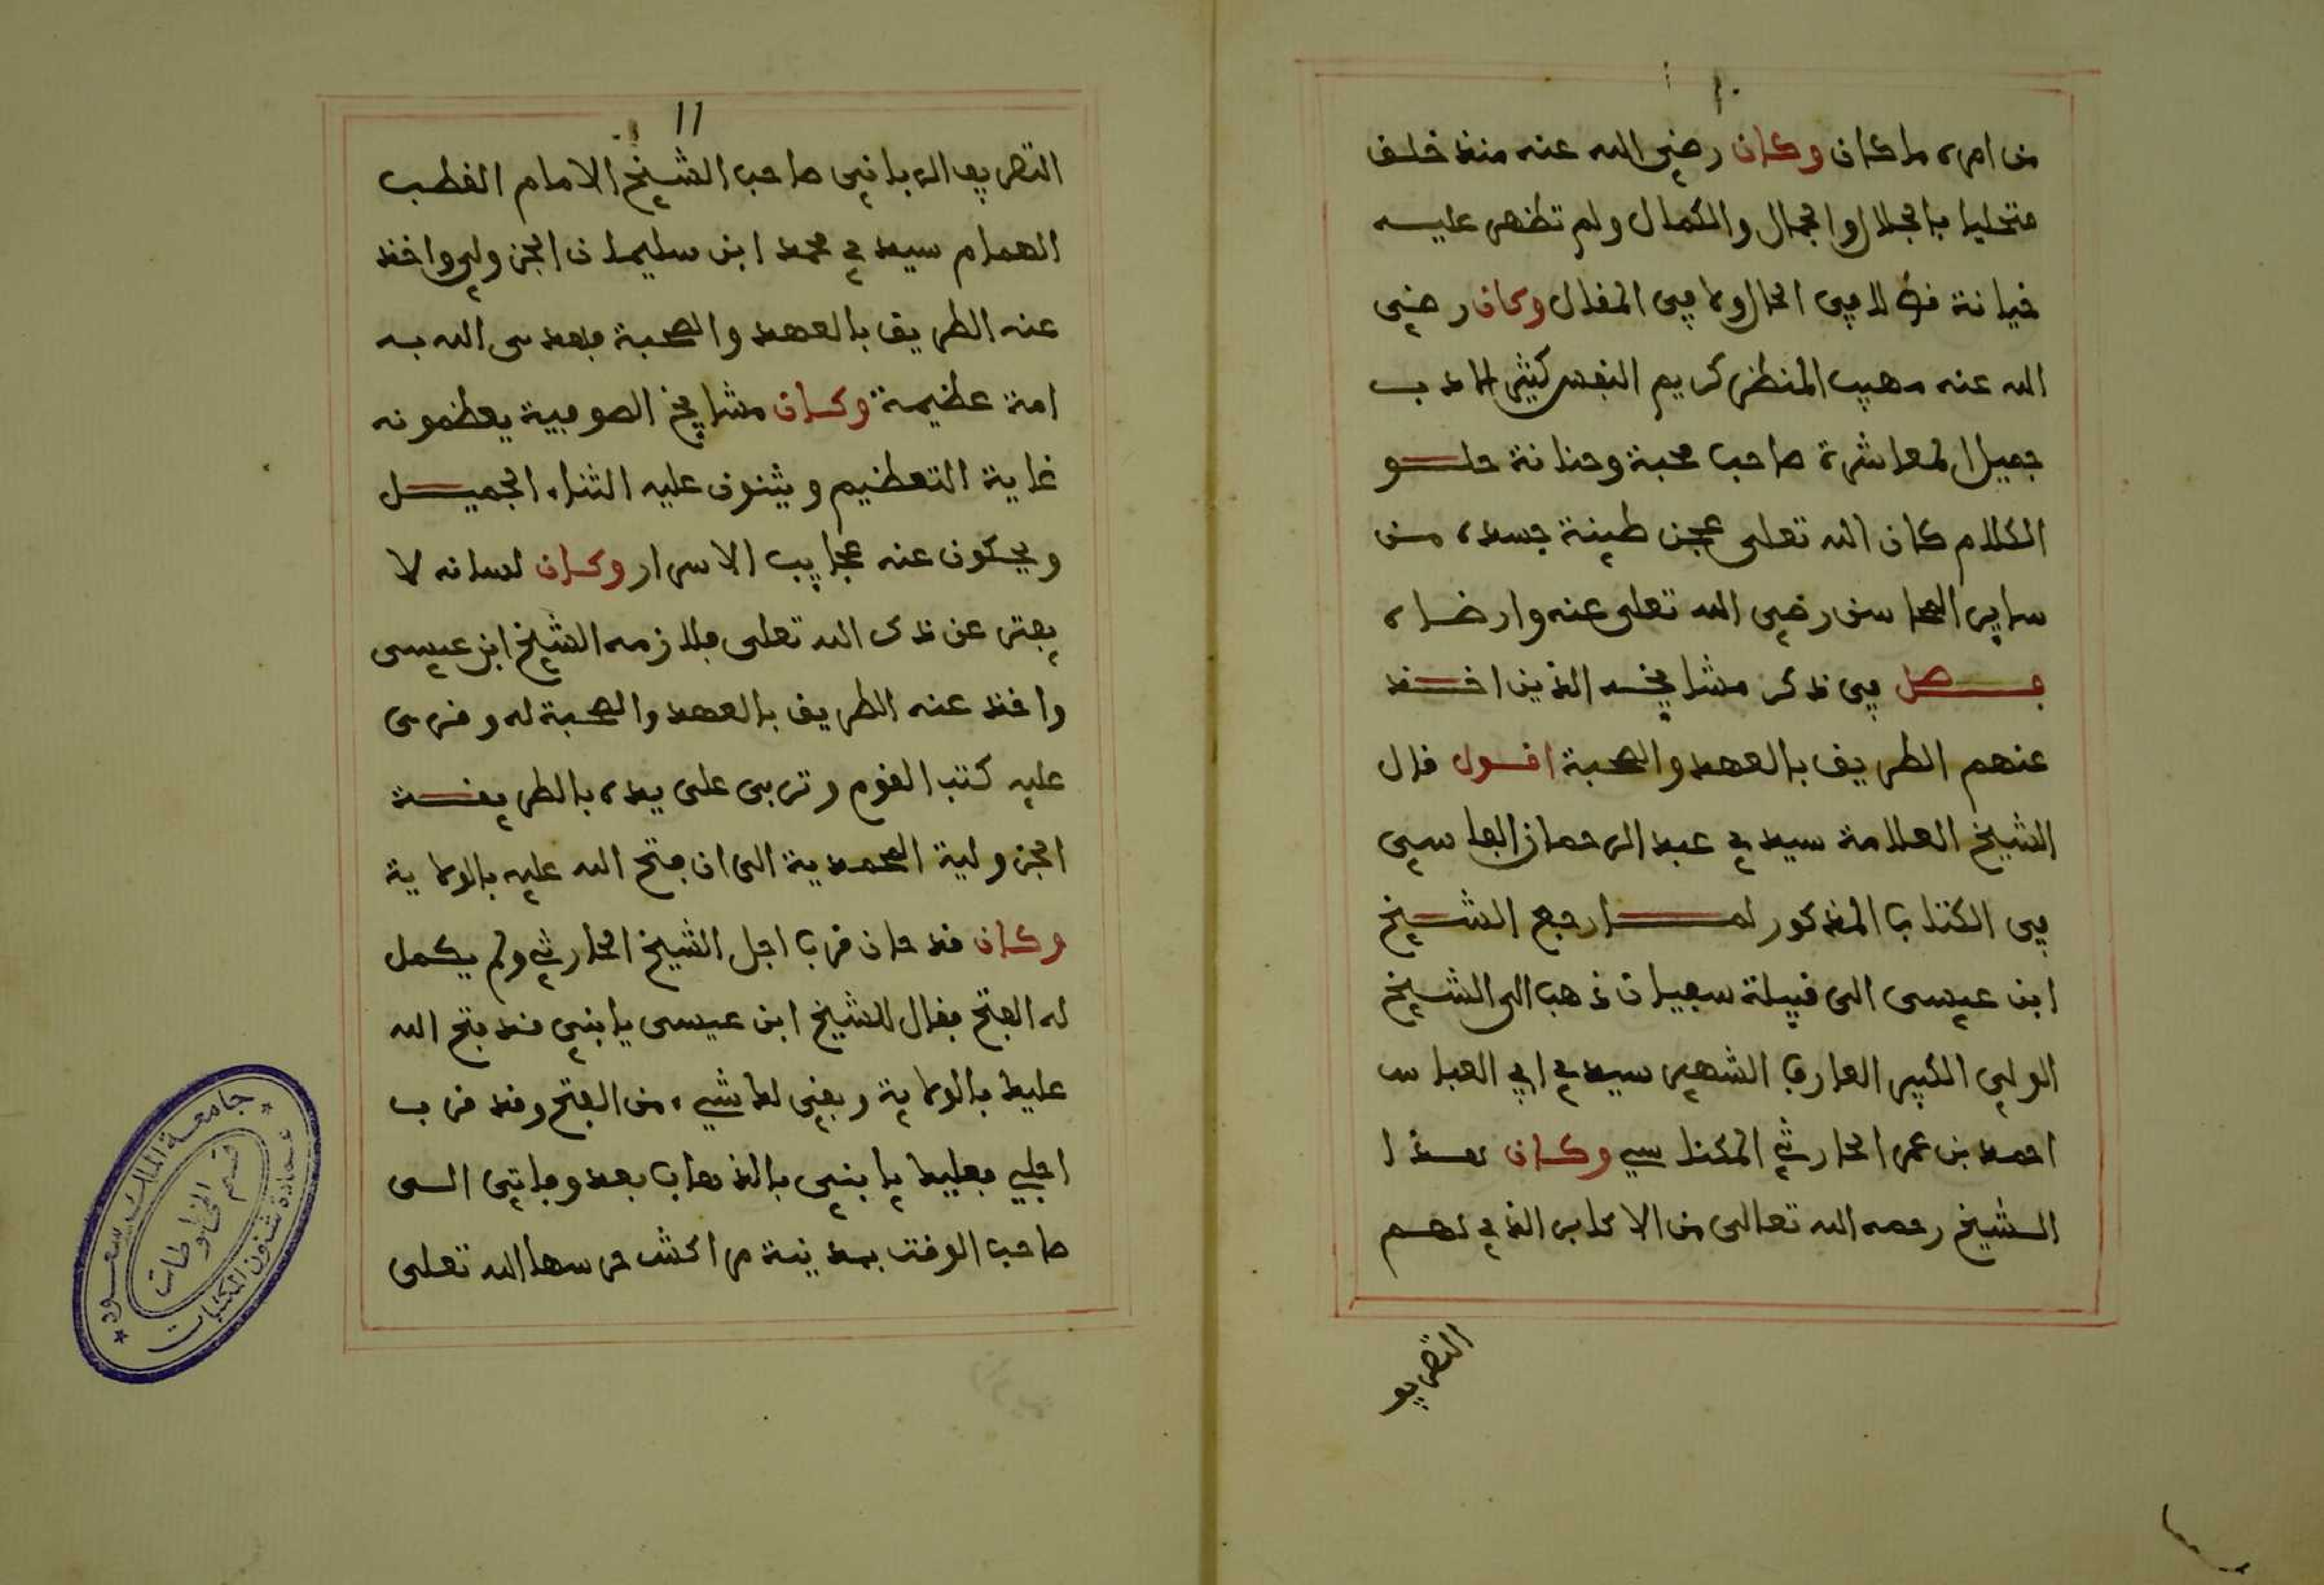 ١٠
من امره ما كان وكان رضي الله عنه منذ خلق
متحليا بالجلال والجمال والكمال ولم تظهر عليه
خيانة قط لا في الحال ولا في المقال وكان رضي
الله عنه مهيب المنظر كريم النفس كثير الادب
جميل المعاشرة صاحب محبة وحنانة حلو
الكلام كان الله تعلى عجن طينة جسده من
ساير المحاسن رضي الله تعلى عنه وارضاه
فصل في ذكر مشايخه الذين اخذ
عنهم الطريق بالعهد والصحبة اقول قال
الشيخ العلامة سيدي عبد الرحمان الفاسي
في الكتاب المذكور لما رجع الشيخ
ابن عيسى الى قبيلة سفيان ذهب الى الشيخ
الولي الكبير العارف الشهير سيدي ابي العباس
احمد بن عمر الحارثي المكناسي وكان هذا
الشيخ رحمه الله تعالى من الاكابر الذي لهم
التصريف
١١
التصريف الرباني صاحب الشيخ الامام القطب
الهمام سيدي محمد ابن سليمان الجزولي واخذ
عنه الطريق بالعهد والصحبة فهدى الله به
امة عظيمة وكان مشايخ الصوفية يعظمونه
غاية التعظيم ويثنون عليه الثناء الجميل
ويحكون عنه عجايب الاسرار وكان لسانه لا
يفتر عن ذكر الله تعلى فلازمه الشيخ ابن عيسى
واخذ عنه الطريق بالعهد والصحبة له وقرى
عليه كتب القوم وتربى على يده بالطريقة
الجزولية المحمدية الى ان فتح الله عليه بالولاية
وكان قد حان قرب اجل الشيخ الحارثي ولم يكمل
له الفتح فقال للشيخ ابن عيسى يا بني قد فتح الله
عليك بالولاية وبقي لك شيء من الفتح وقد قرب
اجلي فعليك يا بني بالذهاب بعد وفاتي الى
صاحب الوقت بمدينة مراكش حرسها الله تعلى
جامعة الملك سعود
عمادة شئون المكتبات
قسم المخطوطات